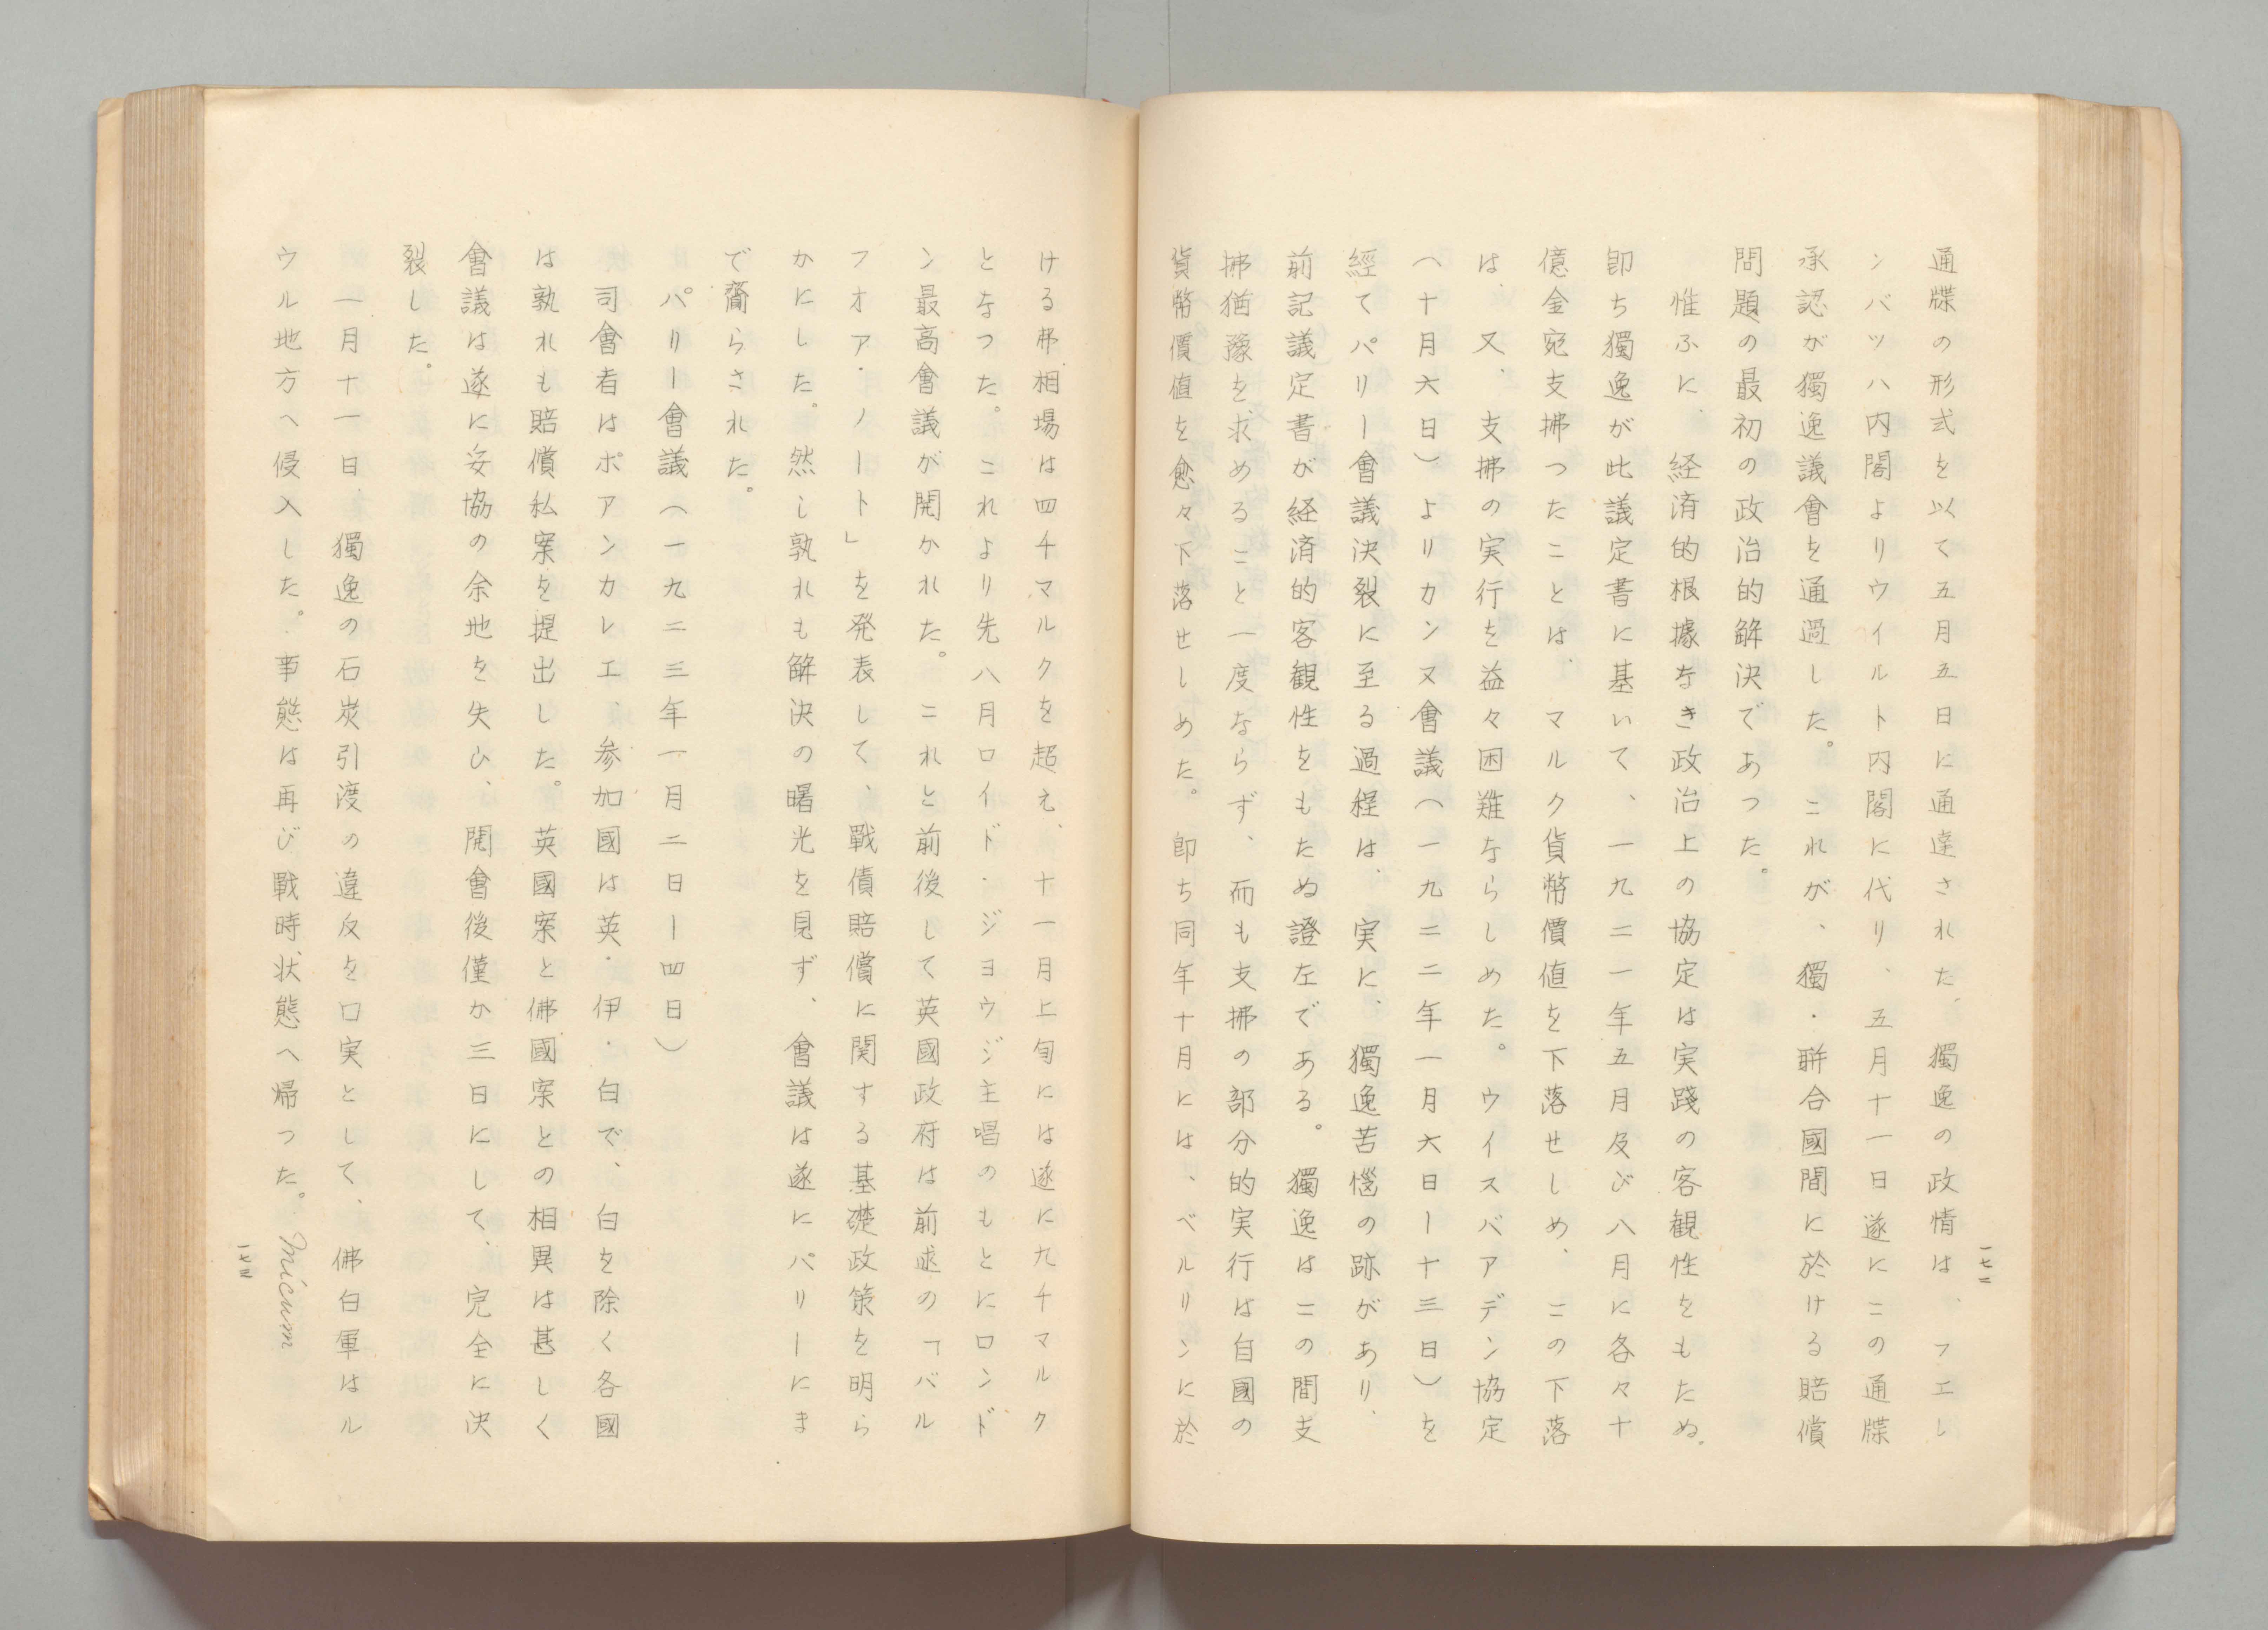 通牒の形式を以て五月五日に通達された。獨逸の政情は、フエレ
ンバツハ内閣よりウイルト内閣に代り、五月十一日遂にこの通牒
承認が獨逸議會を通過した。これが、獨・聯合國間に於ける賠償
問題の最初の政治的解決であつた。
惟ふに、経済的根據なき政治上の協定は実踐の客観性をもたぬ。
卽ち獨逸が此議定書に基いて、一九二一年五月及び八月に各々十
億金宛支拂つたことは、マルク貨幣價値を下落せしめ、この下落
は、又、支拂の実行を益々困難ならしめた。ウイスバアデン協定
（十月六日）よりカンヌ會議（一九二二年一月六日ー十三日）を
經てパリー會議決裂に至る過程は、実に、獨逸苦惱の跡があり、
前記議定書が経済的客観性をもたぬ證左である。獨逸はこの間支
拂猶豫を求めること一度ならず、而も支拂の部分的実行は自國の
貨幣價値を愈々下落せしめた。卽ち同年十月には、ベルリンに於
一七二
ける弗相場は四千マルクを超え、十一月上旬には遂に九千マルク
となつた。これより先八月ロイド・ジヨウジ主唱のもとにロンド
ン最高會議が開かれた。これと前後して英國政府は前述の「バル
フオア・ノート」を発表して、戰債賠償に関する基礎政策を明ら
かにした。然し孰れも解決の曙光を見ず、會議は遂にパリーにま
で齎らされた。
パリー會議（一九二三年一月二日ー四日）
司會者はポアンカレエ、参加國は英・伊・白で、白を除く各國
は孰れも賠償私案を提出した。英國案と佛國案との相異は甚しく
會議は遂に妥協の余地を失ひ、開會後僅か三日にして、完全に決
裂した。
一月十一日、獨逸の石炭引渡の違反を口実として、佛白軍はル
ウル地方へ侵入した。事態は再び戰時状態へ帰つた。Micum
一七三